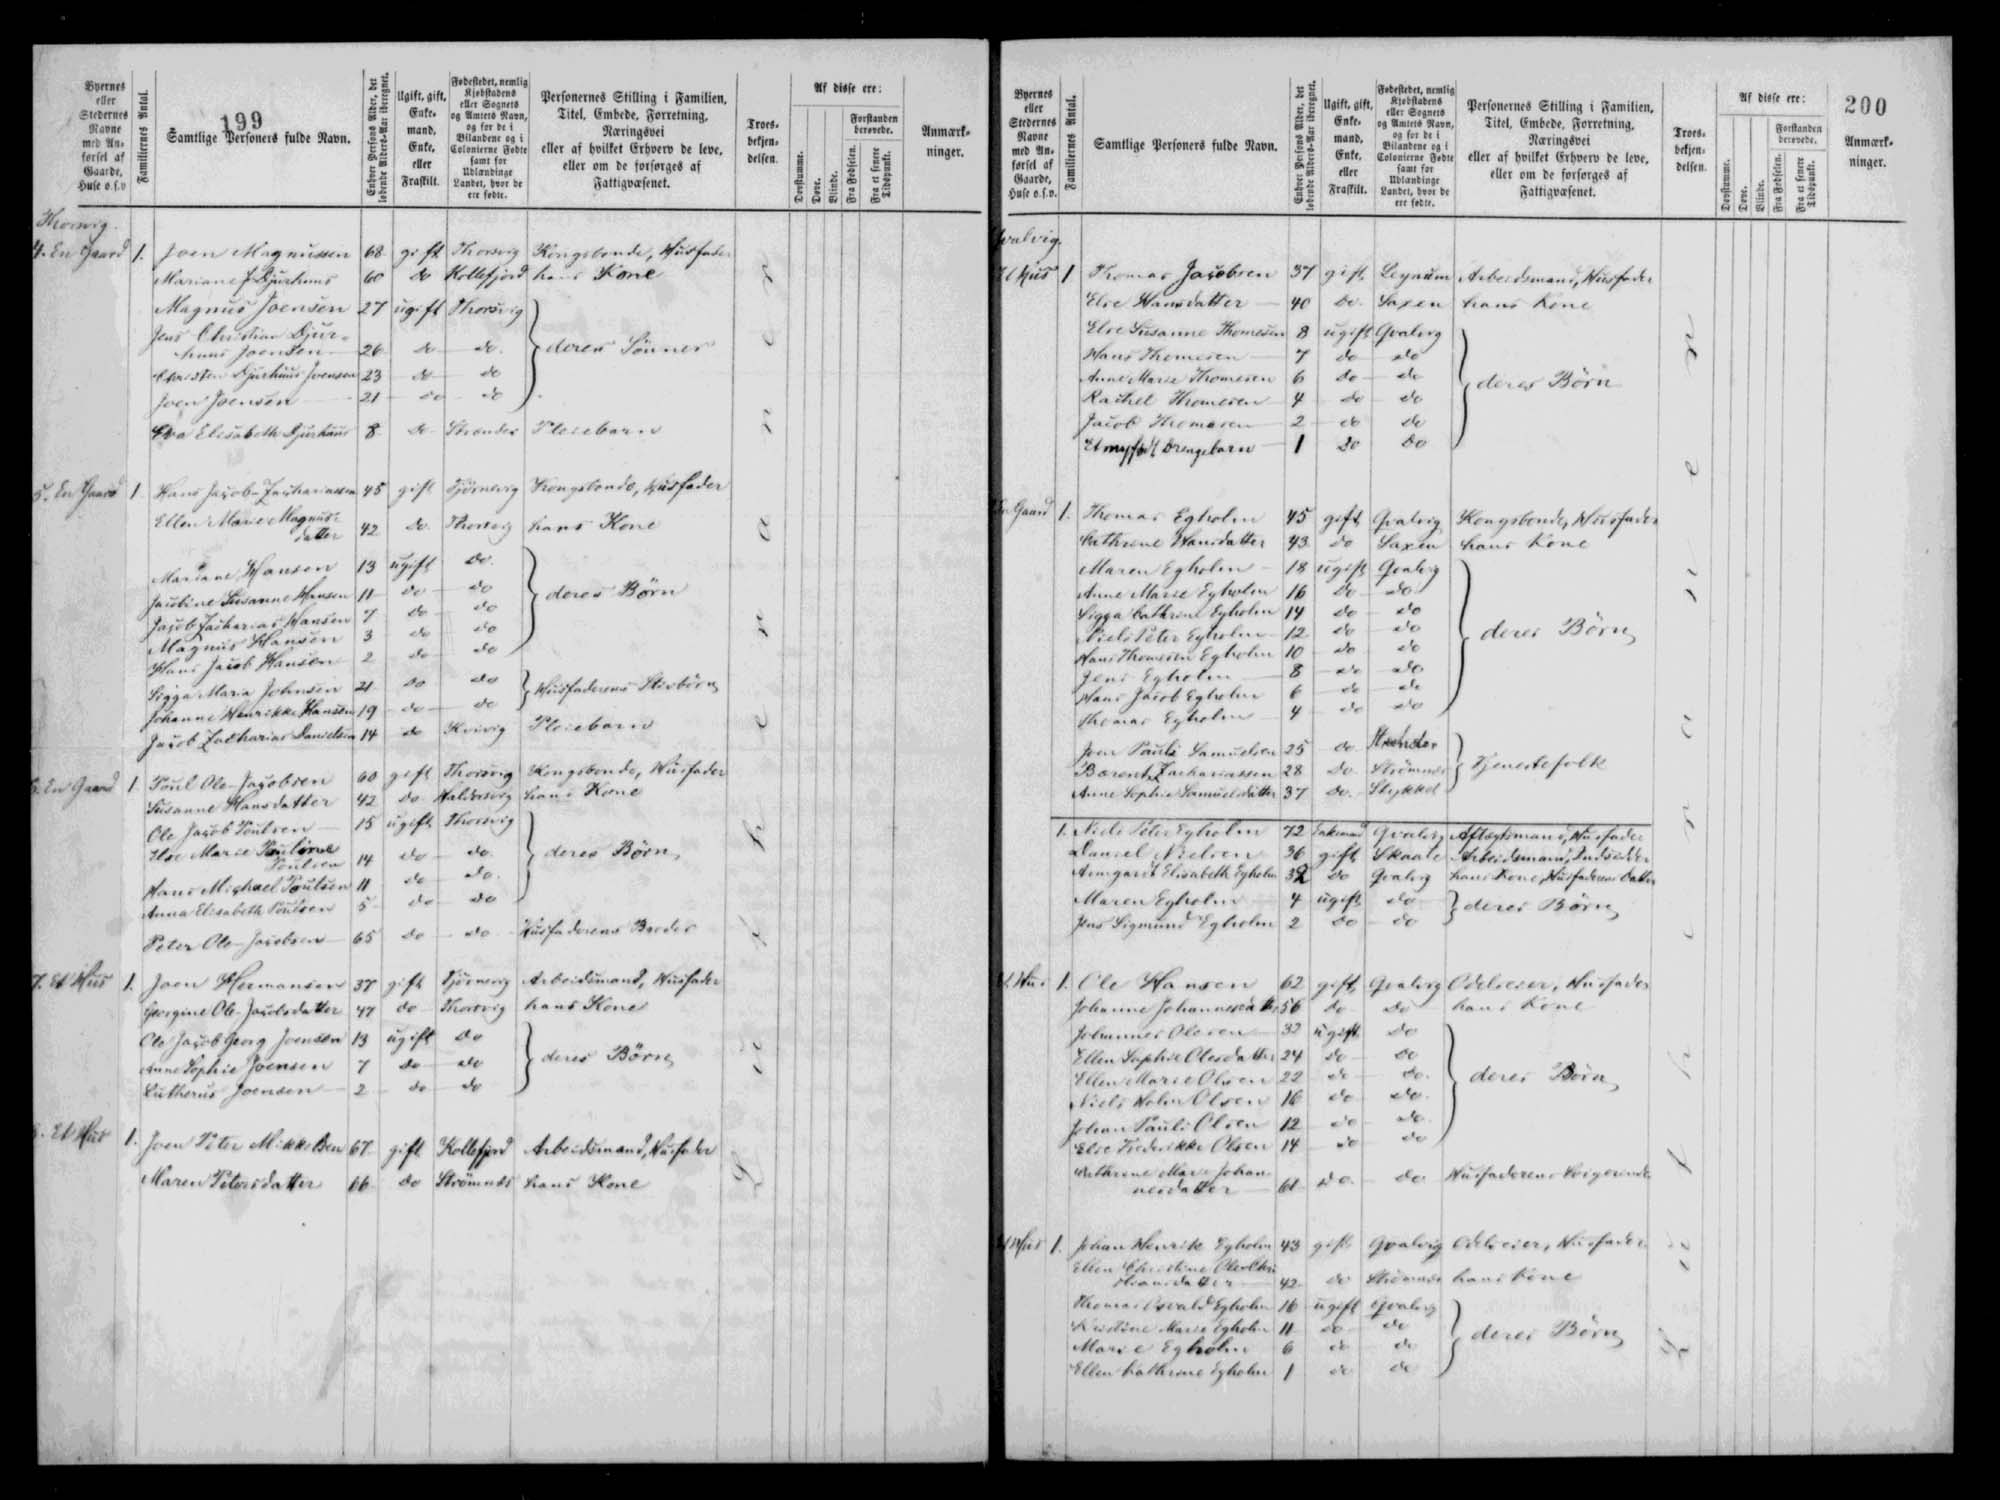 199
Byernes eller Stedernes Navne med Anførsel af Gaarde, Huse o.s.v.
Familiernes Antal.
Samtlige Personers fulde Navn.
Enhver Persons Alder, det løbende Alders-Aar iberegnet.
Ugift, gift, Enkemand, Enke, eller Fraskilt.
Fødestedet, nemlig Kjøbstadens eller Sognets og Amtets Navn, og for de i Bilandene og i Colonierne Fødte samt for Udlændinge Landet, hvor de ere fødte.
Personernes Stilling i Familien, Titel, Embede, Forretning, Næringsvei eller af hvilket Erhverv de leve, eller om de forsørges af Fattigvæsenet.
Troesbekjendelsen.
Af disse ere:
Døvstumme.
Døve.
Blinde.
Forstanden berøvede.
Fra Fødselen.
Fra et senere Tidspunkt.
Anmærkninger.
Thorsvig.
4. En Gaard 1. Joen Magnussen 68 gift Thorsvig Kongsbonde, Husfader
Mariane Djurhuus 60 do Kollefjord hans Kone
Magnus Joensen 27 ugift Thorsvig
Jens Christian Djurhuus Joensen 26 do do deres Sønner
Christen Djurhuus Joensen 23 do do
Joen Joensen 21 do do
Eva Elisabeth Djurhuus 8 do Strender Pleiebarn
5. En Gaard 1. Hans Jacob Zachariassen 45 gift Tjørnevig Kongsbonde, Husfader
Ellen Marie Magnusdatter 42 do Thorsvig hans Kone
Mariane Hansen 13 ugift do
Jacobine Susanne Hansen 11 do do deres Børn
Jacob Zacharias Hansen 7 do do
Magnus Hansen 3 do do
Hans Jacob Hansen 2 do do
Sigga Maria Johnsen 21 do do Husfaderens Stivbørn
Johanne Henrikke Hansen 19 do do
Jacob Zacharias Danielsen 14 do Kvivig Pleiebarn
6. En Gaard 1. Poul Ole Jacobsen 60 gift Thorsvig Kongsbonde, Husfader
Susanne Hansdatter 42 do Haldersvig hans Kone
Ole Jacob Poulsen 15 ugift Thorsvig
Else Marie Pouline Poulsen 14 do do deres Børn
Hans Michael Poulsen 11 do do
Anna Elisabeth Poulsen 5 do do
Peter Ole Jacobsen 65 do do Husfaderens Broder
7. Et Hus 1. Joen Hermansen 37 gift Tjørnevig Arbeidsmand, Husfader
Georgine Ole Jacobsdatter 47 do Thorsvig hans Kone
Ole Jacob Georg Joensen 13 ugift do
Anne Sophie Joensen 7 do do deres Børn
Lutherus Joensen 2 do do
8. Et Hus 1. Joen Peter Mikkelsen 67 gift Kollefjord Arbeidsmand, Husfader
Maren Petersdatter 66 do Strømnæs hans Kone
Lutheranere
200
Byernes eller Stedernes Navne med Anførsel af Gaarde, Huse o.s.v.
Familiernes Antal.
Samtlige Personers fulde Navn.
Enhver Persons Alder, det løbende Alders-Aar iberegnet.
Ugift, gift, Enkemand, Enke, eller Fraskilt.
Fødestedet, nemlig Kjøbstadens eller Sognets og Amtets Navn, og for de i Bilandene og i Colonierne Fødte samt for Udlændinge Landet, hvor de ere fødte.
Personernes Stilling i Familien, Titel, Embede, Forretning, Næringsvei eller af hvilket Erhverv de leve, eller om de forsørges af Fattigvæsenet.
Troesbekjendelsen.
Af disse ere:
Døvstumme.
Døve.
Blinde.
Forstanden berøvede.
Fra Fødselen.
Fra et senere Tidspunkt.
Anmærkninger.
Qvalvig.
Et Hus 1 Thomas Jacobsen 37 gift Leynum Arbeidsmand, Husfader
Else Hansdatter 40 do Saxen hans Kone
Else Susanne Thomesen 8 ugift Qvalvig
Hans Thomesen 7 do do
Anne Marie Thomesen 6 do do deres Børn
Rachel Thomesen 4 do do
Jacob Thomesen 2 do do
Et nyfødt Drengebarn 1 do do
En Gaard 1. Thomas Egholm 45 gift Qvalvig Kongsbonde, Husfader
Cathrine Hansdatter 43 do Saxen hans Kone
Maren Egholm 18 ugift Qvalvig
Anne Marie Egholm 16 do do
Sigga Cathrine Egholm 14 do do
Niels Peter Egholm 12 do do deres Børn
Hans Thomesen Egholm 10 do do
Jens Egholm 8 do do
Hans Jacob Egholm 6 do do
Thomas Egholm 4 do do
Joen Pauli Samuelsen 25 do Strender
Barent Zachariassen 28 do Strømnæs Tjenestefolk
Anne Sophie Samuelsdatter 37 do Stykket
1. Niels Peter Egholm 72 Enkemand Qvalvig Aftægtsmand, Husfader
Daniel Nielsen 36 gift Skaale Arbeidsmand, Indsidder
Armgard Elisabeth Egholm 32 do Qvalvig hans Kone, Husfaderens Datter
Maren Egholm 4 ugift do deres Børn
Jens Sigmund Egholm 2 do do
Et Hus 1. Ole Hansen 62 gift Qvalvig Odelseier, Husfader
Johanne Johannesdatter 56 do do hans Kone
Johannes Olesen 32 ugift do
Ellen Sophie Olesdatter 24 do do
Ellen Marie Olsen 22 do do deres Børn
Niels Holm Olsen 16 do do
Johan Pauli Olsen 12 do do
Else Frederikke Olsen 14 do do
Cathrine Marie Johannesdatter 61 do do Husfaderens Svigerinde
Et Hus 1. Johan Henrik Egholm 43 gift Qvalvig Odelseier, Husfader
Ellen Christine Ole Christiansdatter 42 do Strømnæs hans Kone
Thomas Osvald Egholm 16 ugift Qvalvig
Kristine Marie Egholm 11 do do deres Børn
Marie Egholm 6 do do
Ellen Kathrine Egholm 1 do do
Lutheranere